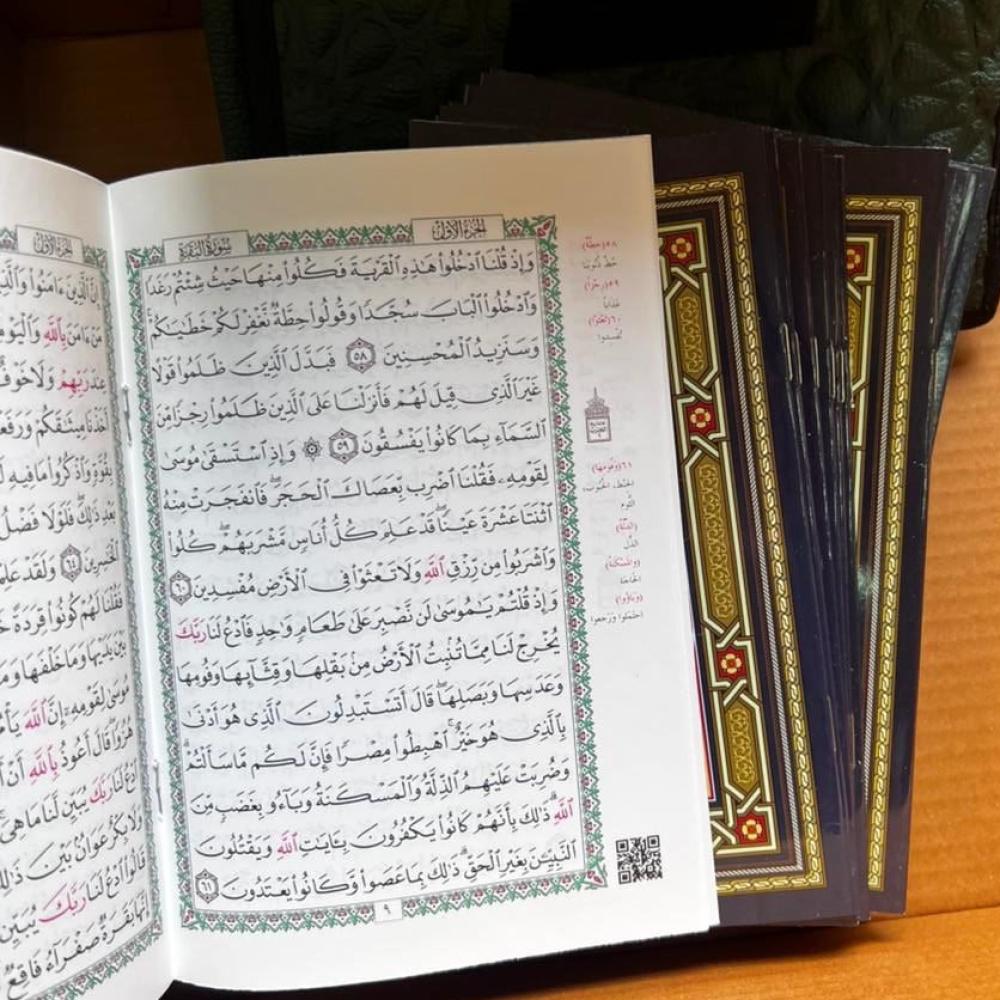 سورة البقرة
الجزء الأول
وَإِذْ قُلْنَا ادْخُلُوا هَٰذِهِ الْقَرْيَةَ فَكُلُوا مِنْهَا حَيْثُ شِئْتُمْ رَغَدًا
وَادْخُلُوا الْبَابَ سُجَّدًا وَقُولُوا حِطَّةٌ نَّغْفِرْ لَكُمْ خَطَٰيَٰكُمْ ۚ
وَسَنَزِيدُ الْمُحْسِنِينَ ٥٨ فَبَدَّلَ الَّذِينَ ظَلَمُوا قَوْلًا
غَيْرَ الَّذِي قِيلَ لَهُمْ فَأَنزَلْنَا عَلَى الَّذِينَ ظَلَمُوا رِجْزًا مِّنَ
السَّمَآءِ بِمَا كَانُوا يَفْسُقُونَ ٥٩ ۞ وَإِذِ اسْتَسْقَىٰ مُوسَىٰ
لِقَوْمِهِ فَقُلْنَا اضْرِب بِّعَصَاكَ الْحَجَرَ ۖ فَانفَجَرَتْ مِنْهُ
اثْنَتَا عَشْرَةَ عَيْنًا ۖ قَدْ عَلِمَ كُلُّ أُنَاسٍ مَّشْرَبَهُمْ ۖ كُلُوا
وَاشْرَبُوا مِن رِّزْقِ اللَّهِ وَلَا تَعْثَوْا فِي الْأَرْضِ مُفْسِدِينَ ٦٠
وَإِذْ قُلْتُمْ يَٰمُوسَىٰ لَن نَّصْبِرَ عَلَىٰ طَعَامٍ وَٰحِدٍ فَادْعُ لَنَا رَبَّكَ
يُخْرِجْ لَنَا مِمَّا تُنۢبِتُ الْأَرْضُ مِنۢ بَقْلِهَا وَقِثَّآئِهَا وَفُومِهَا
وَعَدَسِهَا وَبَصَلِهَا ۖ قَالَ أَتَسْتَبْدِلُونَ الَّذِي هُوَ أَدْنَىٰ
بِالَّذِي هُوَ خَيْرٌ ۚ اهْبِطُوا مِصْرًا فَإِنَّ لَكُم مَّا سَأَلْتُمْ ۗ
وَضُرِبَتْ عَلَيْهِمُ الذِّلَّةُ وَالْمَسْكَنَةُ وَبَآءُو بِغَضَبٍ مِّنَ
اللَّهِ ۗ ذَٰلِكَ بِأَنَّهُمْ كَانُوا يَكْفُرُونَ بِـَٔايَٰتِ اللَّهِ وَيَقْتُلُونَ
النَّبِيِّـۧنَ بِغَيْرِ الْحَقِّ ۗ ذَٰلِكَ بِمَا عَصَوا وَّكَانُوا يَعْتَدُونَ ٦١
٩
٥٨ (حطة)
حط ذنوبنا
٥٩ (رجزا)
عذابا
٦٠ (تعثوا)
تفسدوا
٦١ (وفومها)
الحنطة، الحبوب،
الثوم
(الذلة)
الذل
(والمسكنة)
(وباؤوا)
احتملوا ورجعوا
الجزء الأول
إِنَّ الَّذِينَ ءَامَنُوا وَالَّذِ
مَنْ ءَامَنَ بِاللَّهِ وَالْيَوْمِ
عِندَ رَبِّهِمْ وَلَا خَوْفٌ
أَخَذْنَا مِيثَٰقَكُمْ وَرَفَعْ
بِقُوَّةٍ وَاذْكُرُوا مَا فِيهِ
بَعْدِ ذَٰلِكَ ۖ فَلَوْلَا فَضْلُ
الْخَٰسِرِينَ ٦٤ وَلَقَدْ عَلِمْ
فَقُلْنَا لَهُمْ كُونُوا قِرَدَةً
بَيْنَ يَدَيْهَا وَمَا خَلْفَهَا وَ
مُوسَىٰ لِقَوْمِهِ إِنَّ اللَّهَ يَأْ
هُزُوًا ۖ قَالَ أَعُوذُ بِاللَّهِ أَنْ
ادْعُ لَنَا رَبَّكَ يُبَيِّن لَّنَا مَا هِيَ
وَلَا بِكْرٌ عَوَانٌۢ بَيْنَ ذَٰلِ
قَالُوا ادْعُ لَنَا رَبَّكَ يُبَيِّن
إِنَّهَا بَقَرَةٌ صَفْرَآءُ فَاقِعٌ